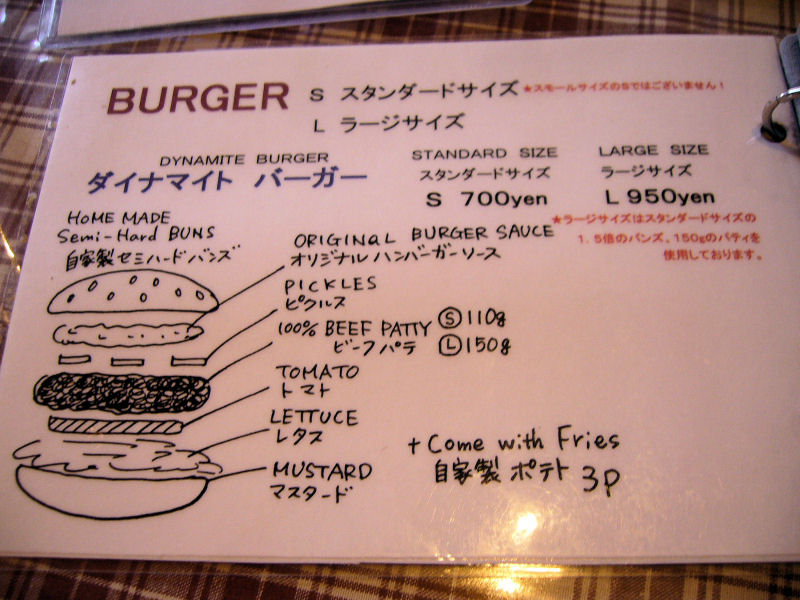 BURGER S スタンダードサイズ ★スモールサイズのSではございません！
L ラージサイズ
DYNAMITE BURGER
ダイナマイト バーガー
STANDARD SIZE
スタンダードサイズ
S 700yen
LARGE SIZE
ラージサイズ
L 950yen
★ラージサイズはスタンダードサイズの
1.5倍のバンズ、150gのパティを
使用しております。
HOME MADE
Semi-Hard BUNS
自家製セミハードバンズ
ORIGINAL BURGER SAUCE
オリジナルハンバーガーソース
PICKLES
ピクルス
100% BEEF PATTY Ⓢ110g
ビーフパテ Ⓛ150g
TOMATO
トマト
LETTUCE
レタス
MUSTARD
マスタード
+ Come with Fries
自家製ポテト 3P